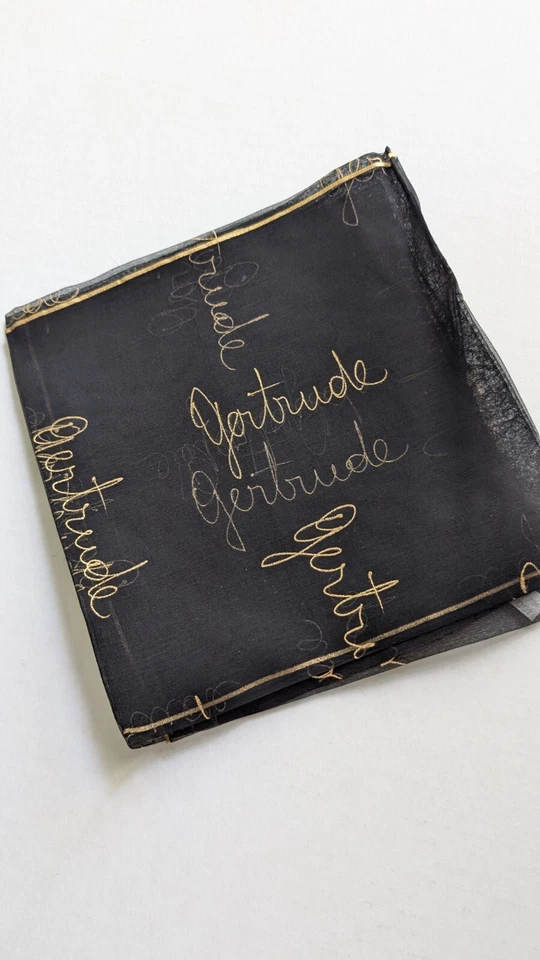 Gertrude
Gertrude
Gertrude
Gertru
rude